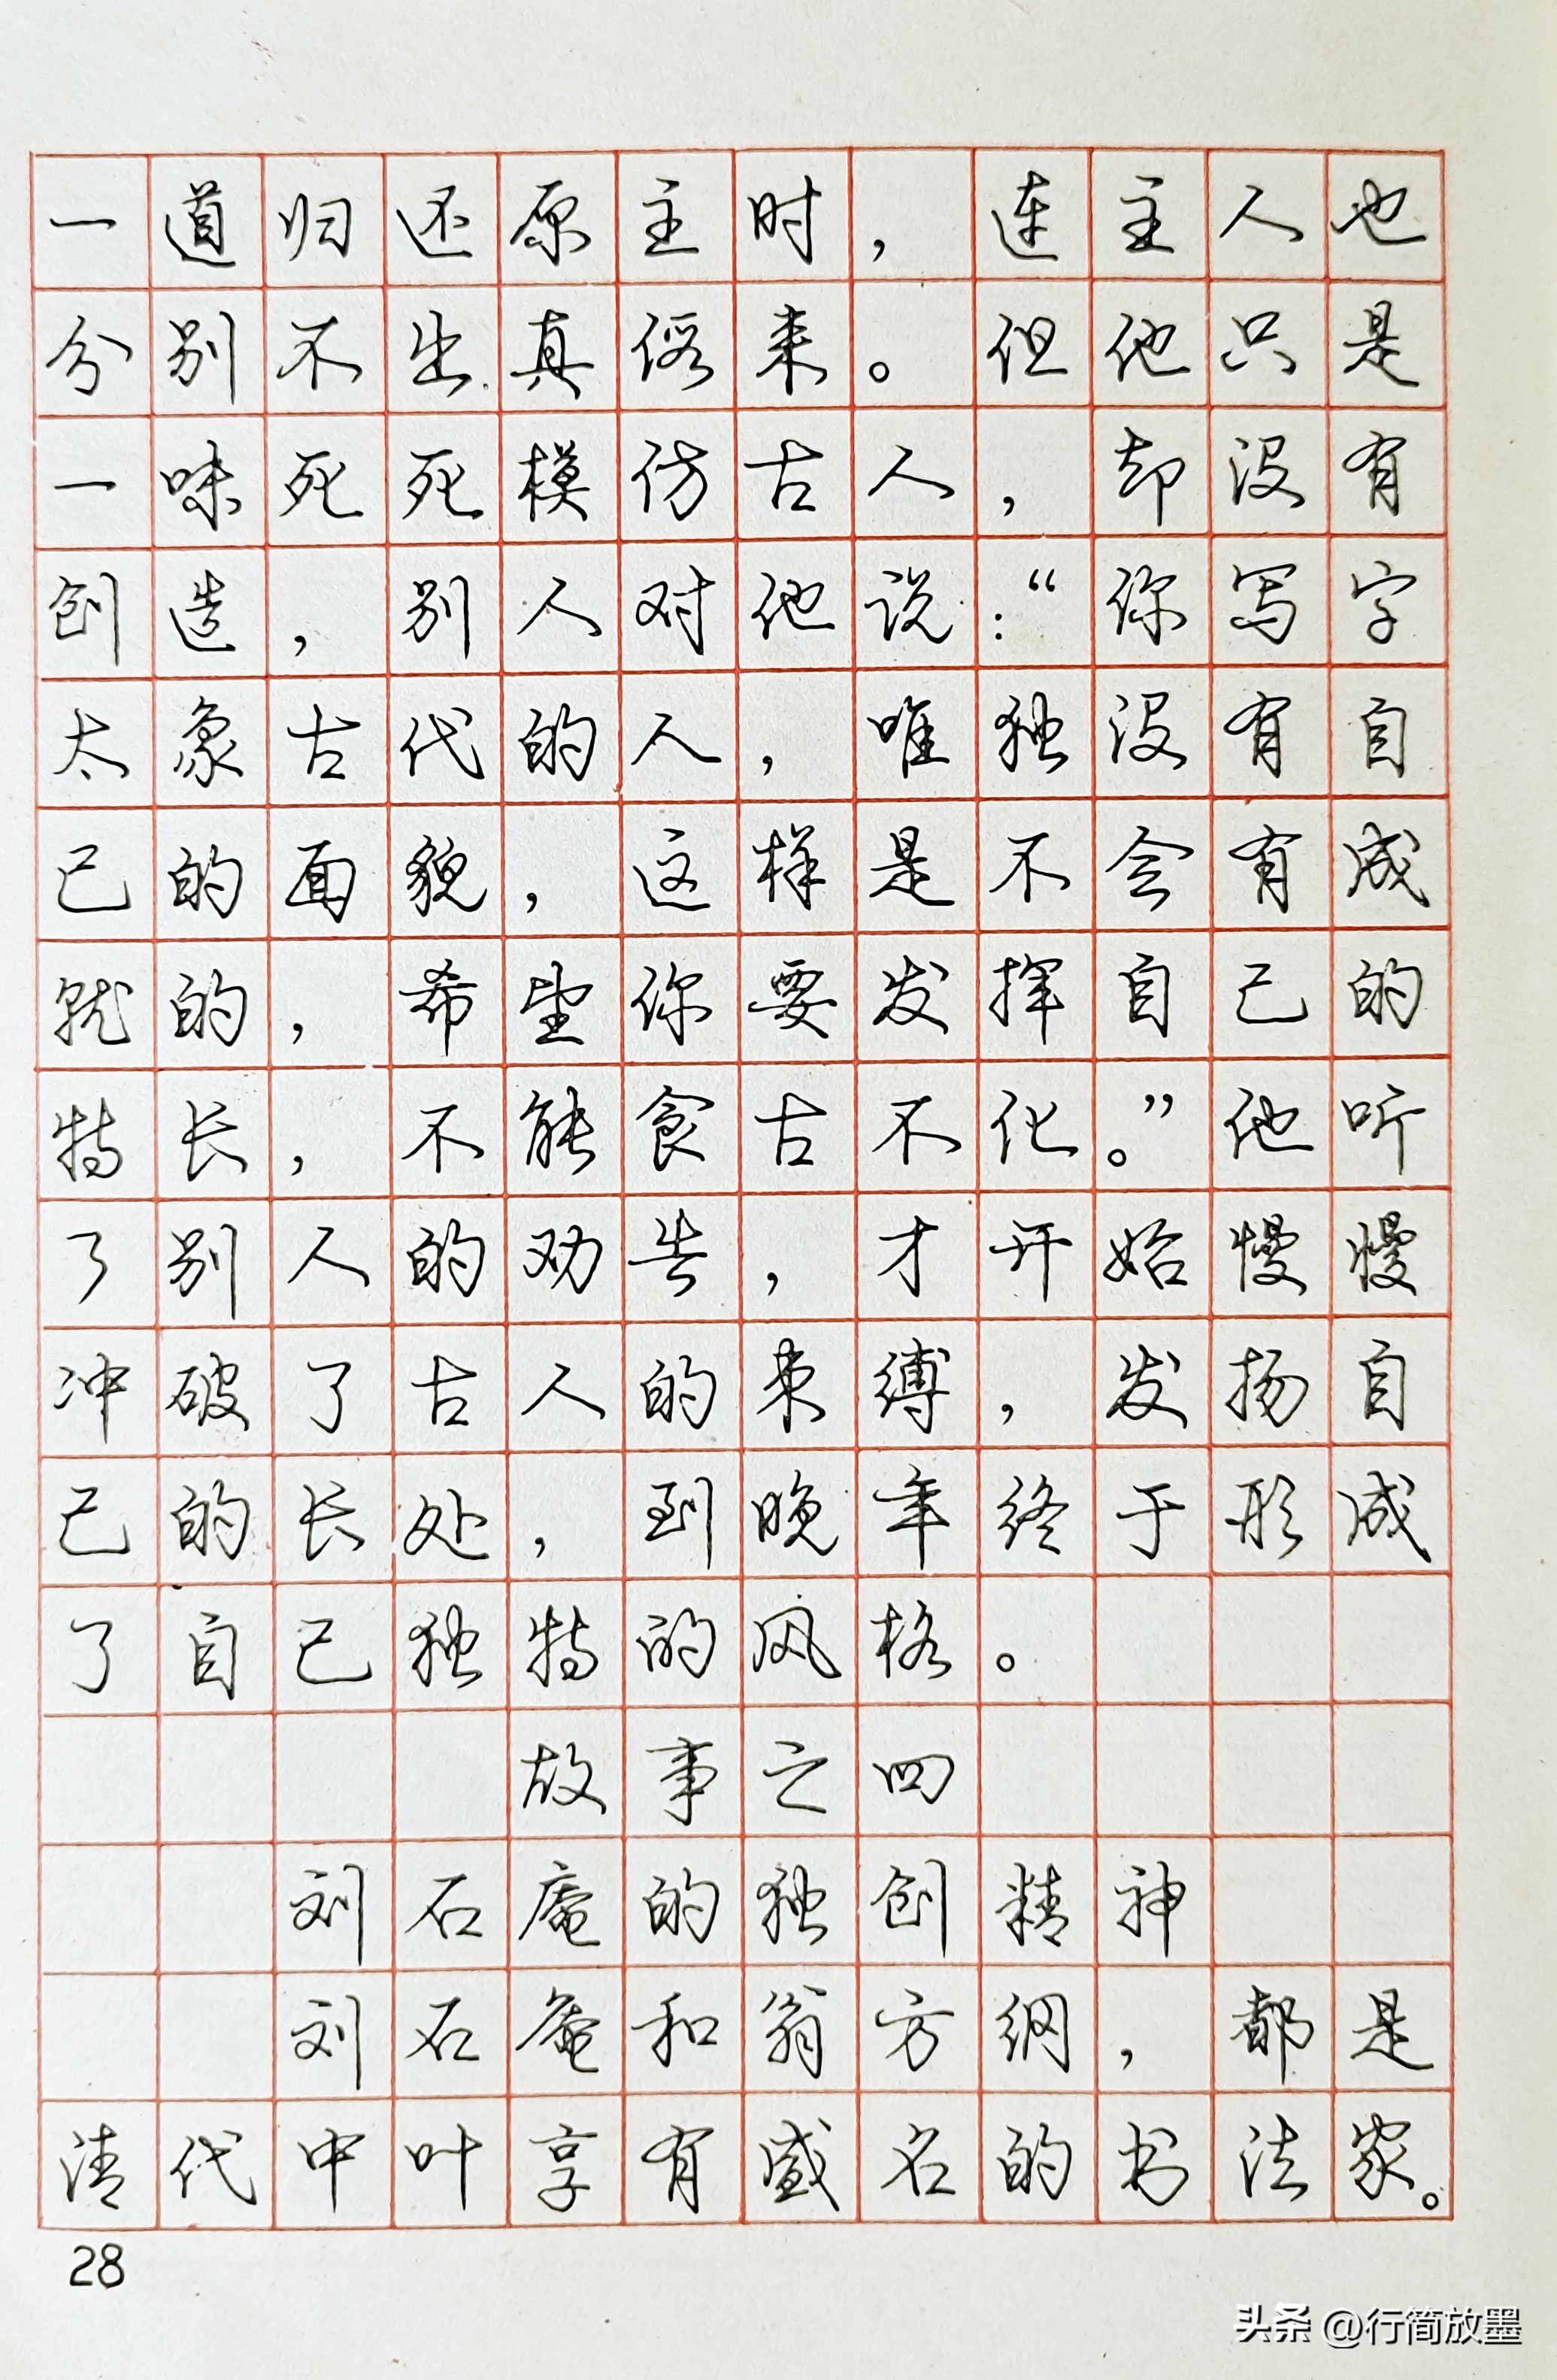 一道归还原主时，连主人也
分别不出真伪来。但他只是
一味死死模仿古人，却没有
创造，别人对他说：“你写字
太象古代的人，唯独没有自
己的面貌，这样是不会有成
就的，希望你要发挥自己的
特长，不能食古不化。”他听
了别人的劝告，才开始慢慢
冲破了古人的束缚，发扬自
己的长处，到晚年终于形成
了自己独特的风格。
故事之四
刘石庵的独创精神
刘石庵和翁方纲，都是
清代中叶享有盛名的书法家。
28
头条 @行简放墨